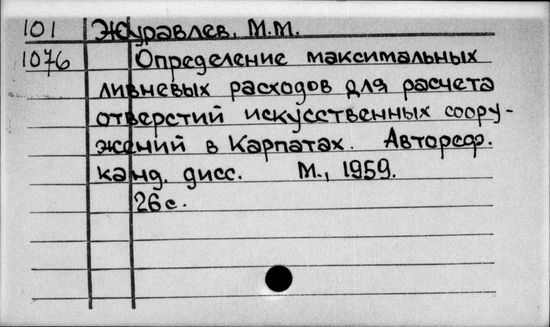 101 Журавлев, М.М.
1076 Определение максимальных
ливневых расходов для расчета
отверстий искусственных соору-
жений в Карпатах. Автореф.
канд. дисс. М., 1959.
26 с.